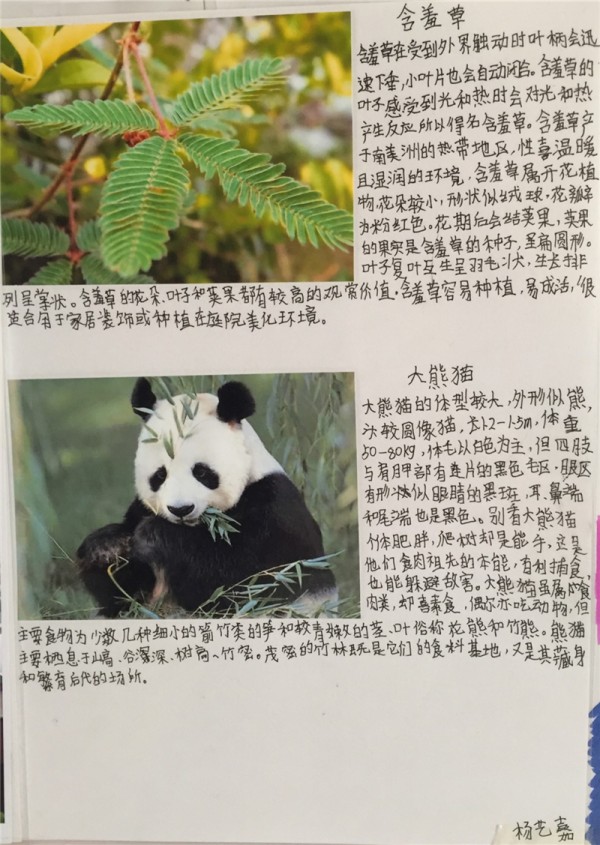 含羞草
含羞草在受到外界触动时叶柄会迅
速下垂,小叶片也会自动闭合。含羞草的
叶子感受到光和热时会对光和热
产生反应所以得名含羞草。含羞草产
于南美洲的热带地区,性喜温暖
且湿润的环境,含羞草属开花植
物,花朵较小,形状似绒球,花瓣
为粉红色。花期后会结荚果,荚果
的果实是含羞草的种子,呈扁圆形。
叶子复叶互生呈羽毛状,生长排
列呈掌状。含羞草的花朵、叶子和荚果都有较高的观赏价值。含羞草容易种植,易成活,很
适合用于家居装饰或种植在庭院美化环境。
大熊猫
大熊猫的体型较大,外形似熊,
头较圆像猫,长1.2-1.5m,体重
50-80kg,体毛以白色为主,但四肢
与肩胛部有连片的黑色毛区,眼区
有形状似眼睛的黑斑,耳、鼻端
和尾端也是黑色。别看大熊猫
体肥胖,爬树却是能手,这是
他们食肉祖先的本能,有利捕食,
也能躲避敌害。大熊猫虽属食
肉类,却喜素食,偶尔亦吃动物,但
主要食物为少数几种细小的箭竹类的笋和较青嫩的茎、叶俗称花熊和竹熊。熊猫
主要栖息于山高、谷深、树高、竹密。茂密的竹林既是它们的食料基地,又是其藏身
和繁育后代的场所。
杨艺嘉